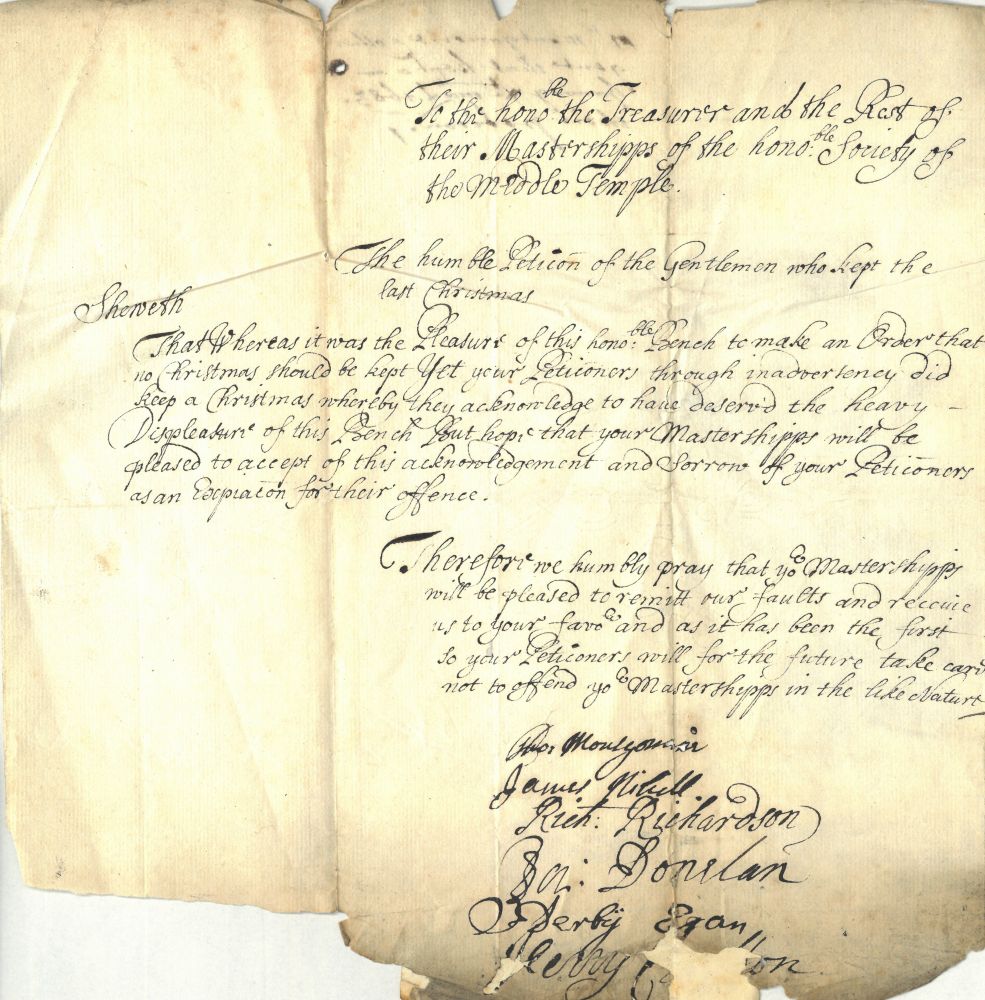 To the hono:ble the Treasurer and the Rest of
their Mastershipps of the hono:ble Society of
the Middle Temple.
The humble Peticon of the Gentlemen who kept the
last Christmas
Sheweth
That Whereas it was the Pleasure of this hono:ble Bench to make an Order that
no Christmas should be kept Yet your Peticoners through inadvertency did
keep a Christmas whereby they acknowledge to have deserv'd the heavy –
Displeasure of this Bench But hope that your Mastershipps will be
pleased to accept of this acknowledgement and Sorrow of your Peticoners
as an Expiacon for their offence.
Therefore we humbly pray that yor Mastershipps
will be pleased to remitt our faults and receive
us to your favor and as it has been the first
so your Peticoners will for the future take care
not to offend yor Mastershipps in the like Nature
James
Rich: Richardson
Donelan
Derby Egan